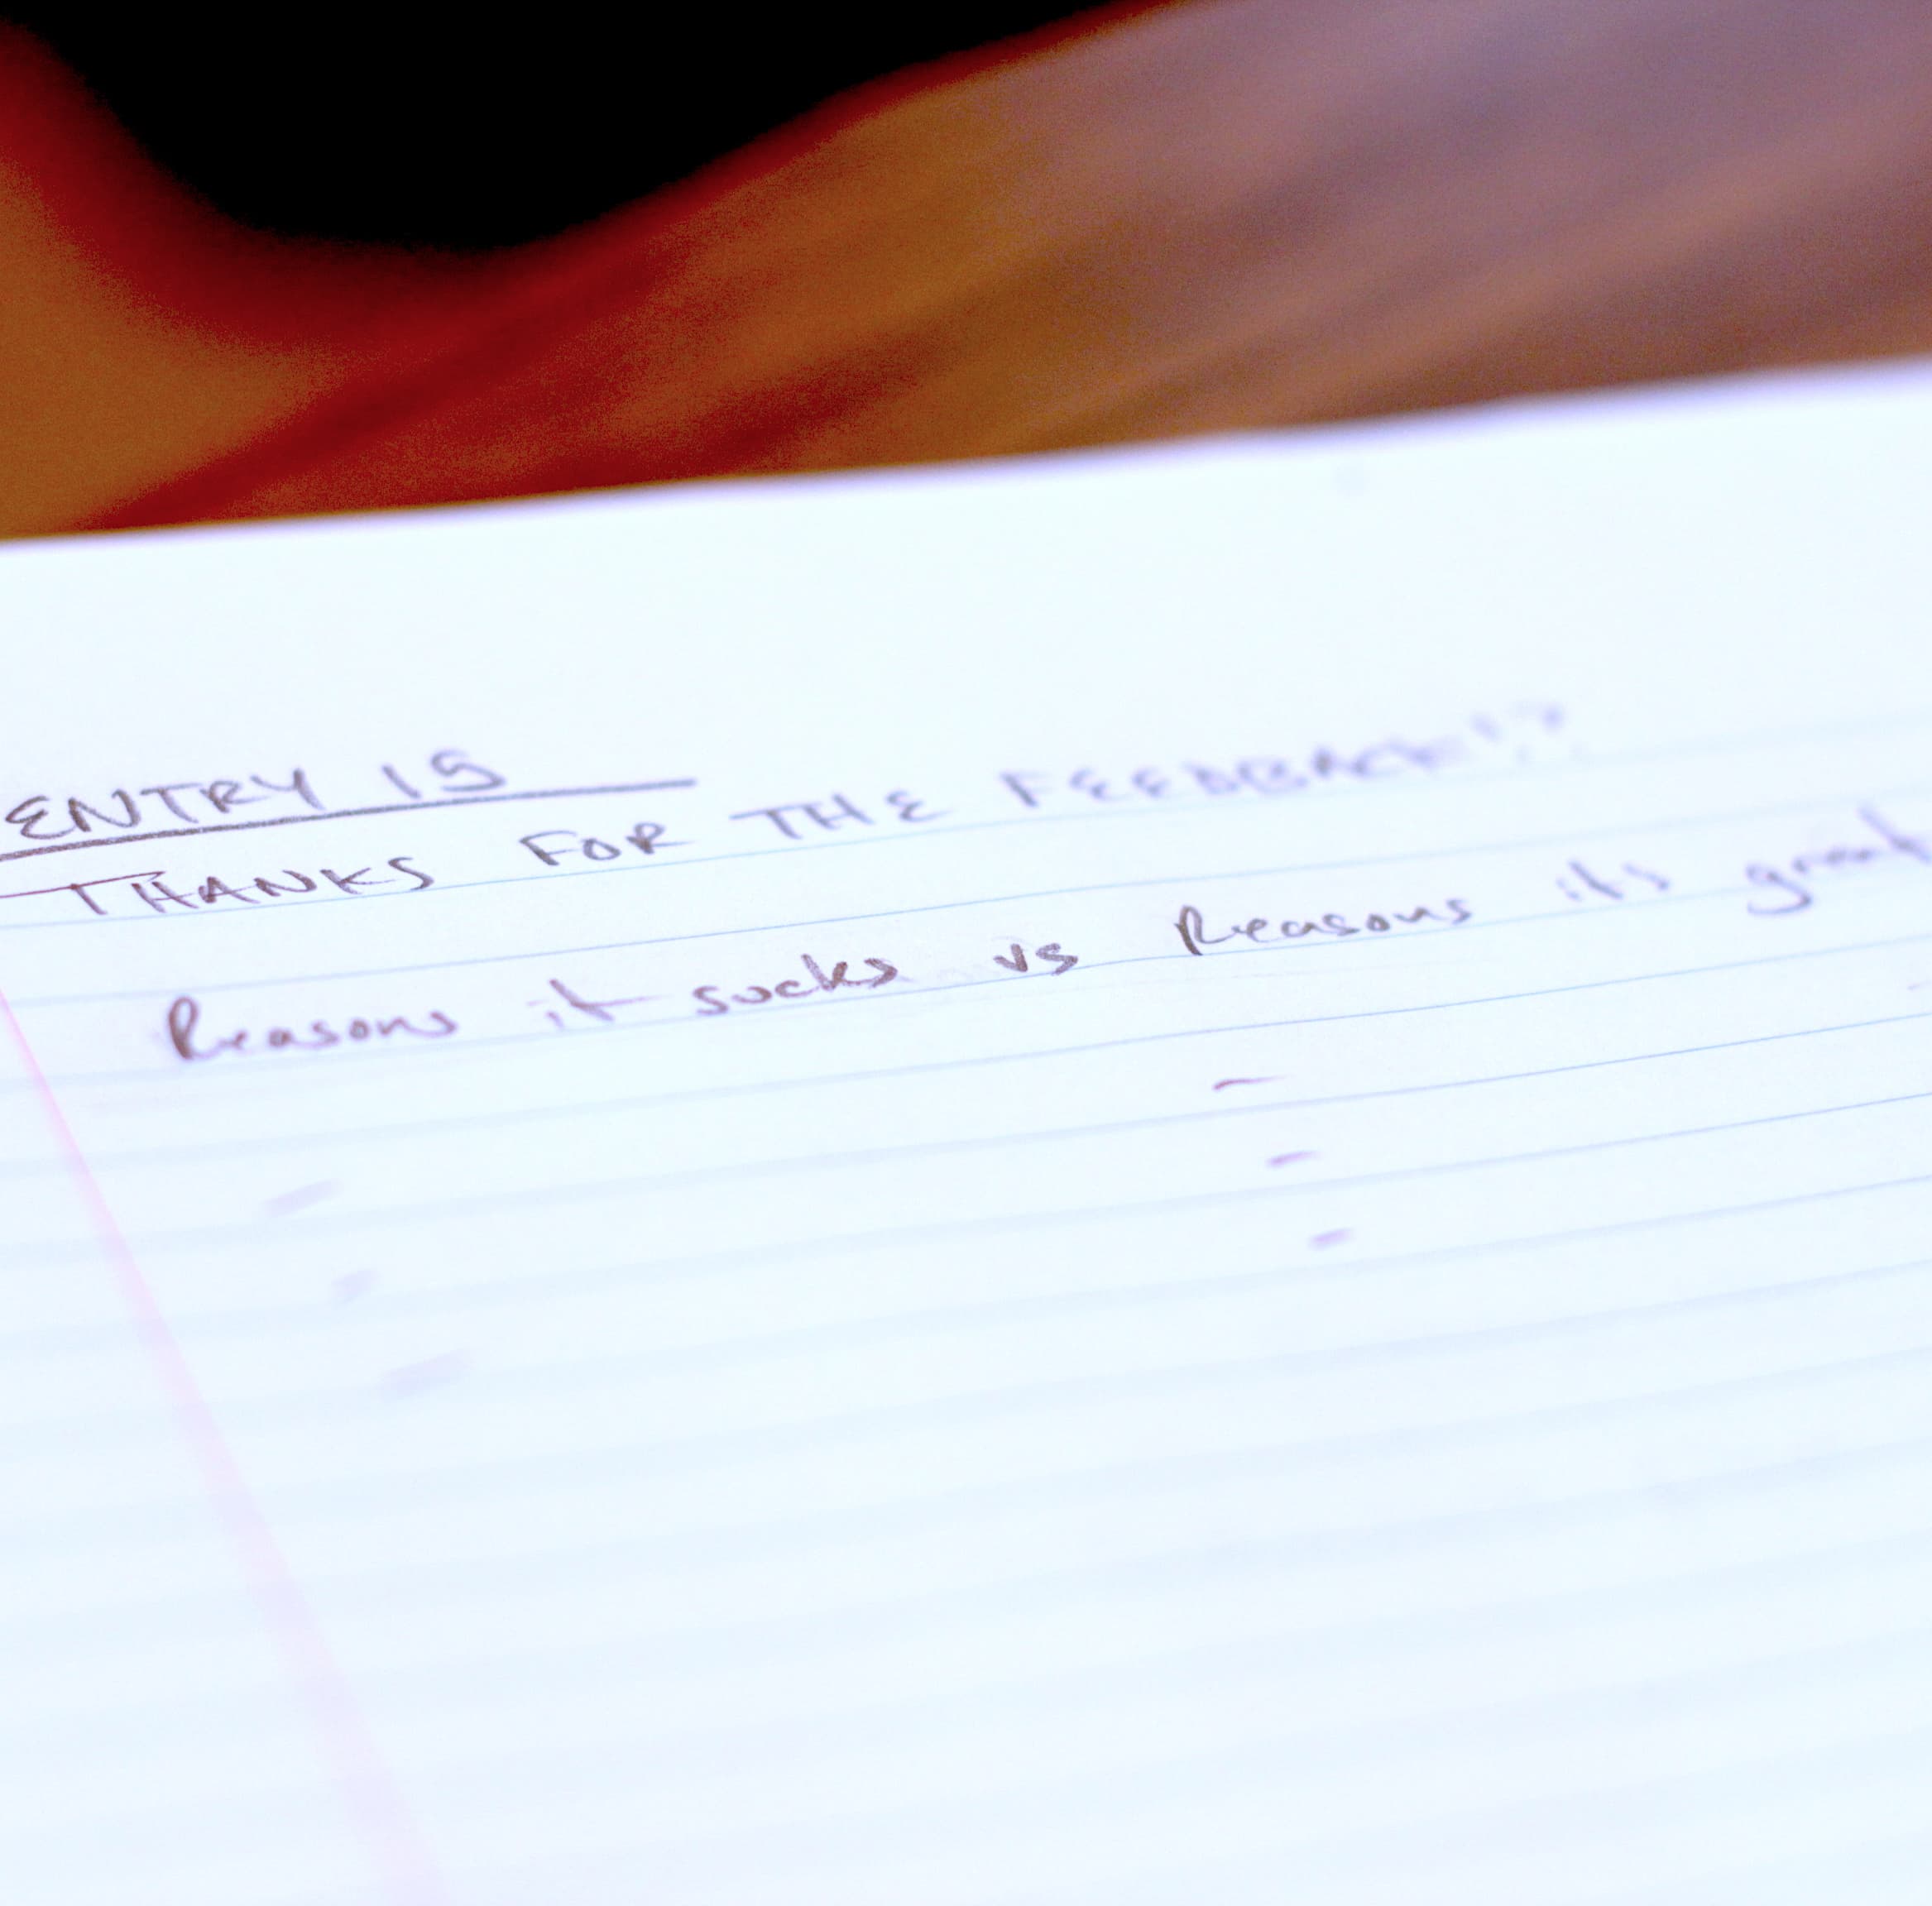 ENTRY 15
THANKS FOR THE FEEDBACK!?
Reasons it sucks vs Reasons its great